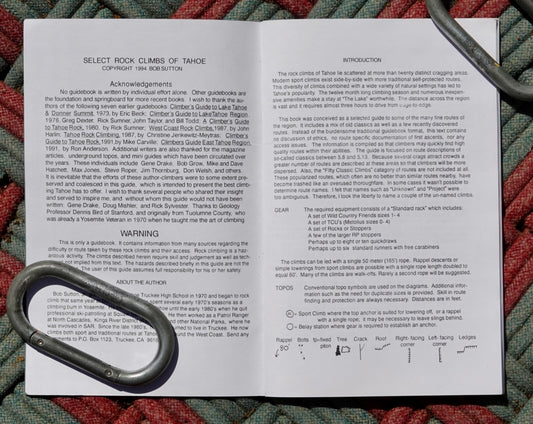 SELECT ROCK CLIMBS OF TAHOE
COPYRIGHT 1994 BOB SUTTON
Acknowledgements
No guidebook is written by individual effort alone. Other guidebooks are
the foundation and springboard for more recent books. I wish to thank the au-
thors of the following seven earlier guidebooks. Climber's Guide to Lake Tahoe
& Donner Summit, 1973, by Eric Beck: Climber's Guide to LakeTahoe Region,
1976, Greg Dexter, John Taylor, and Bill Todd: A Climber's Guide
to Tahoe Rock, 1980, by Rick Sumner; West Coast Rock Climbs, 1987, by John
Harlin; Tahoe Rock Climbing, 1987, by Christine Jenkewitz-Meytras; Climber's
Guide to Tahoe Rock, 1991, by Mike Carville; Climbers Guide East Tahoe Region,
1991, by Ron Anderson. Additional writers are also thanked for the magazine
articles, underground topos, and mini guides which have been circulated over
the years. These individuals include Gene Drake, Bob Grow, Mike and Dave
Hatchett, Max Jones, Steve Roper, Jim Thornburg, Don Welsh, and others.
It is inevitable that the efforts of these author-climbers were to some extent pre-
served and coalesced in this guide, which is intended to present the best climb-
ing Tahoe has to offer. I wish to thank several people who shared their insight
and served to inspire me, and without whom this guide would not have been
written: Gene Drake, Doug Mishler, and Rick Sylvester. Thanks to Geology
Professor Dennis Bird of Stanford, and originally from Tuolumne County, who
was already a Yosemite Veteran in 1970 when he taught me the art of climbing.
WARNING
This is only a guidebook. It contains information from many sources regarding the
difficulty or route taken by these rock climbs and their access. Rock climbing is a haz-
ardous activity. The climbs described herein require skill and judgement as well as tech-
not implied from this text. The hazards described briefly in this guide are not the
The user of this guide assumes full responsibility for his or her safety
ABOUT THE AUTHOR
Bob Sutton, Truckee High School in 1970 and began to rock
climb that same year. spent several early 1970's seasons as a
climbing bum in Yosemite until the early 1980's when he quit
professional ski-patrolling at Squaw He then worked as a Patrol Ranger
at North Cascades, Kings River District and other National Parks, where he
was involved in SAR. Since the late 1980's turned to live in Truckee. He now
climbs both sport and traditional routes at Tahoe around the West Coast. Send any
comments to P.O. Box 1123, Truckee, CA
INTRODUCTION
The rock climbs of Tahoe lie scattered at more than twenty distinct cragging areas.
Modern sport climbs exist side-by-side with more traditional self-protected routes.
This diversity of climbs combined with a wide variety of natural settings has led to
Tahoe's popularity. The twelve month long climbing season and numerous inexpen-
sive amenities make a stay at "The Lake" worthwhile. The distance across the region
is vast and it requires almost three hours to drive from edge-to-edge.
This book was conceived as a selected guide to some of the many fine routes of
the region. It includes a mix of old classics as well as a few recently discovered
routes. Instead of the burdensome traditional guidebook format, this text contains
no discussion of ethics, no route specific documentation of first ascents, nor any
access issues. The information is compiled so that climbers may quickly find high
quality routes within their abilities. The guide is focused on route descriptions of
so-called classics between 5.8 and 5.13. Because several crags attract crowds a
greater number of routes are described at these areas so that climbers will be more
dispersed. Also, the "Fifty Classic Climbs" category of routes are not included at all.
These popularized routes, which often are no better than similar routes nearby, have
become trashed like an overused thoroughfare. In some cases it wasn't possible to
determine route names. I felt that names such as "Unknown" and "Project" were
too ambiguous. Therefore, I took the liberty to name a couple of the un-named climbs.
GEAR The required equipment consists of a "Standard rack" which includes:
A set of Wild Country Friends sizes 1- 4
A set of TCU's (Metolius sizes 0- 4)
A set of Rocks or Stoppers
A few of the larger RP stoppers
Perhaps up to eight or ten quickdraws
Perhaps up to six standard runners with free carabiners
The climbs can be led with a single 50 meter (165') rope. Rappel descents or
simple lowerings from sport climbs are possible with a single rope length doubled to
equal 80'. Many of the climbs are walk-offs. Rarely a second rope will be suggested.
TOPOS Conventional topo symbols are used on the diagrams. Additional infor-
mation such as the need for duplicate sizes is provided. Skill in route
finding and protection are always necessary. Distances are in feet.
Sport Climb where the top anchor is suited to lowering off, or a rappel
with a single rope; it may be necessary to leave slings behind.
Belay station where gear is required to establish an anchor.
Rappel Bolts tip=fixed piton Tree Crack Roof Right-facing corner Left-facing corner Ledges
80'